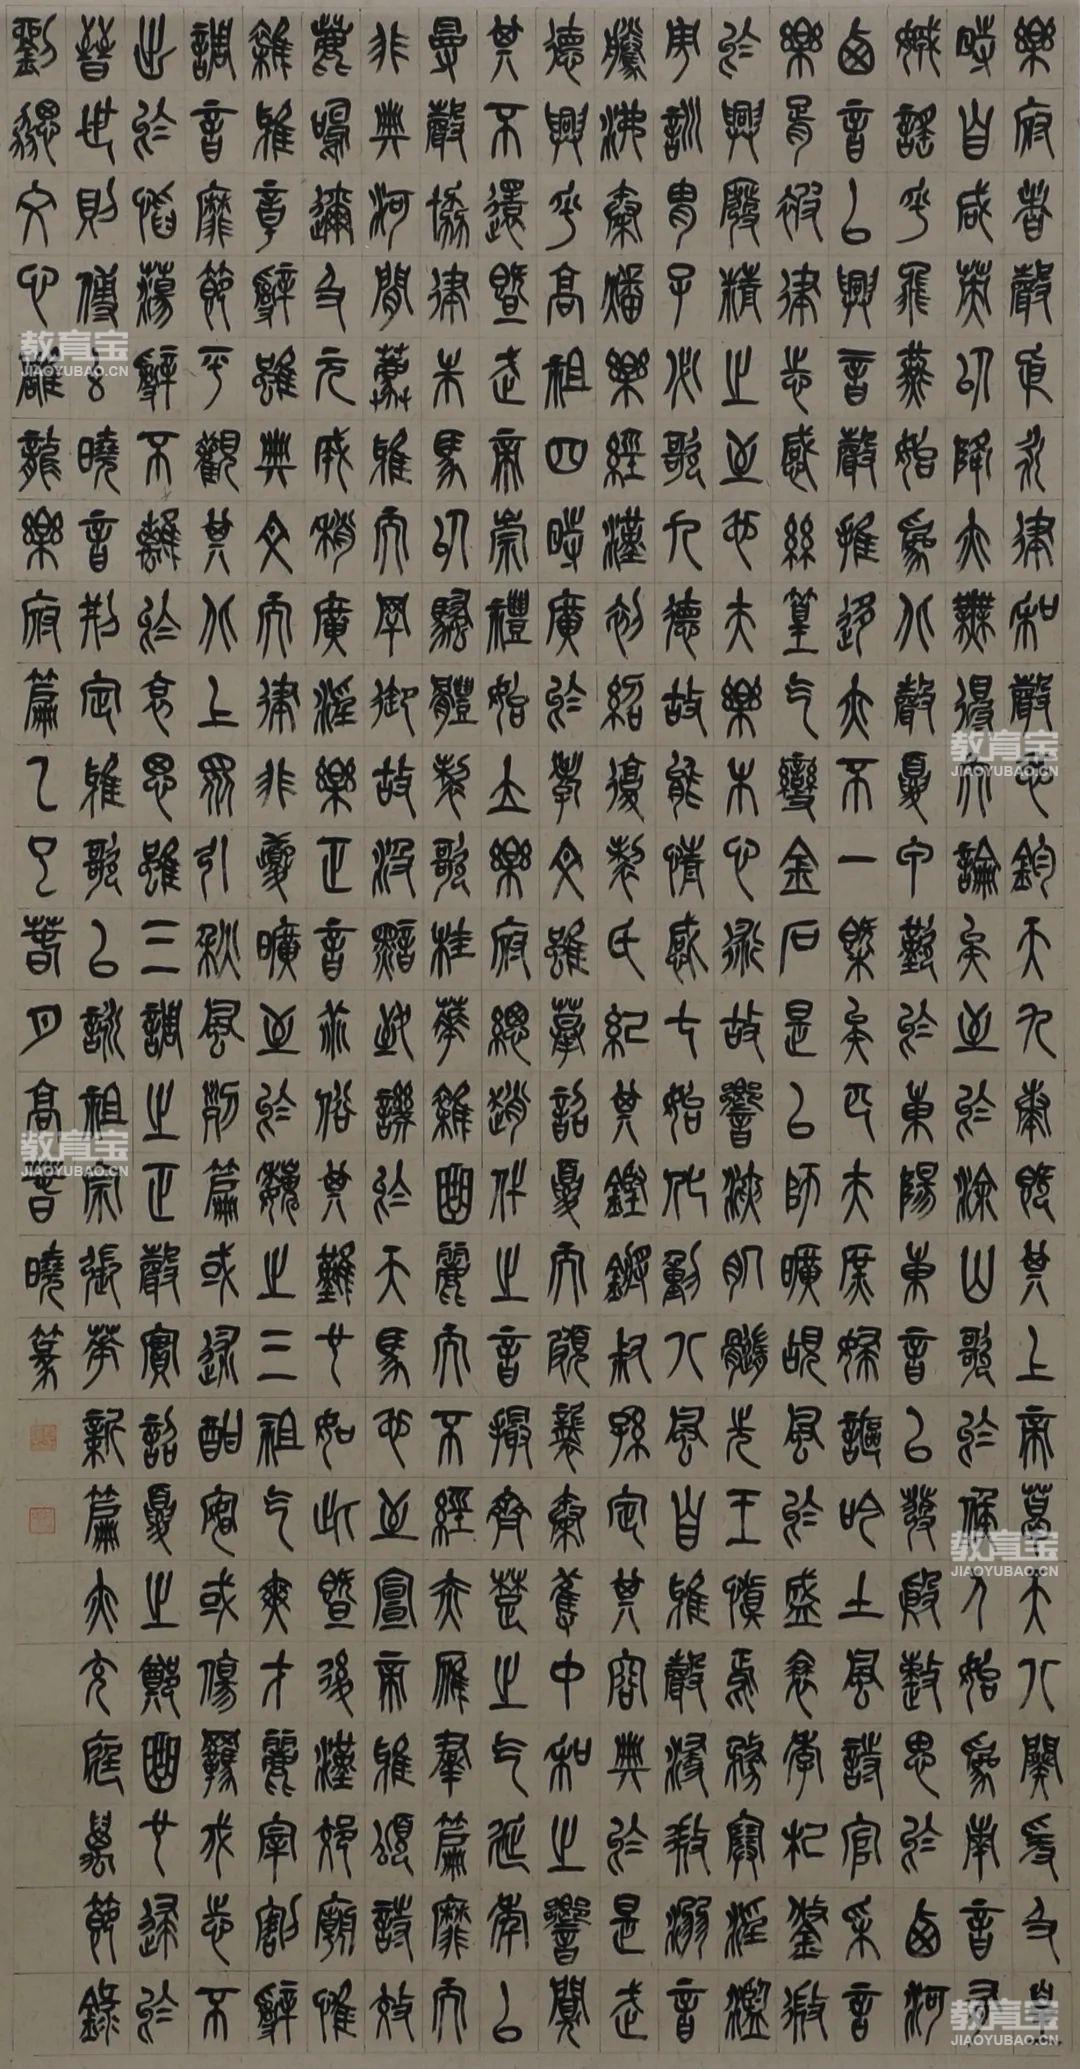 樂府者聲依永律和聲也鈞天九奏既其上帝葛天八闋爰及皇
時自咸英以降亦無得而論矣至於塗山歌於候人始為南音有
娀謠乎飛燕始為北聲夏甲歎於東陽東音以發殷整思於西河
西音以興音聲推移亦不一概矣匹夫庶婦謳吟土風詩官采言
樂胥被律志感絲篁氣變金石是以師曠覘風於盛衰季札鑒微
於興廢精之至也夫樂本心術故響浹肌髓先王慎焉務塞淫濫
敷訓胄子必歌九德故能情感七始化動八風自雅聲浸微溺音
騰沸秦燔樂經漢初紹復製氏紀其鏗鏘叔孫定其容典於是武
德興乎高祖四時廣於孝文雖摹韶夏而頗襲秦舊中和之響闃
其不還暨武帝崇禮始立樂府總趙代之音撮齊楚之氣延年以
曼聲協律朱馬以騷體製歌桂華雜曲麗而不經赤雁群篇靡而
非典河間薦雅而罕御故汲黯致譏於天馬也至宣帝雅頌詩效
鹿鳴邇及元成稍廣淫樂正音乖俗其難也如此暨後漢郊廟惟
雜雅章辭雖典文而律非夔曠至於魏之三祖氣爽才麗宰割辭
調音靡節平觀其北上眾引秋風列篇或述酣宴或傷羈戍志不
出於慆蕩辭不離於哀思雖三調之正聲實韶夏之鄭曲也逮於
晉世則傅玄曉音創定雅歌以詠祖宗張華新篇亦充庭萬節錄
劉勰文心雕龍樂府篇乙巳春月高春曉篆
教育宝
JIAOYUBAO.CN
教育宝
JIAOYUBAO.CN
教育宝
JIAOYUBAO.CN
教育宝
JIAOYUBAO.CN
教育宝
JIAOYUBAO.CN